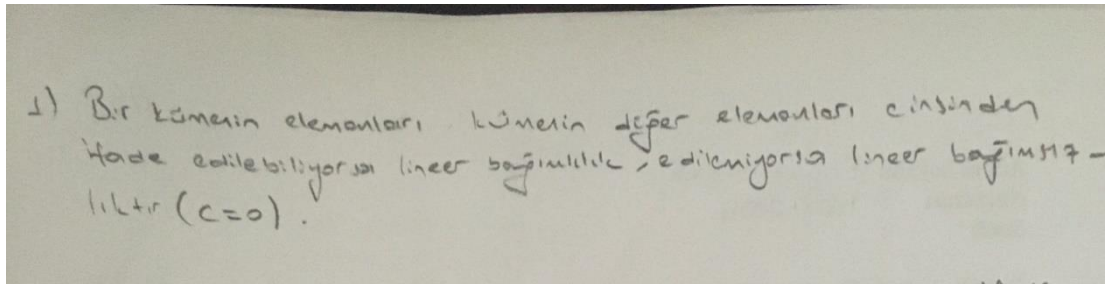 1) Bir kümenin elemanları kümenin değer elemanları cinsinden
ifade edilebiliyorsa lineer bağımlılık, edilemiyorsa lineer bağımsız-
lıktır (c=0).